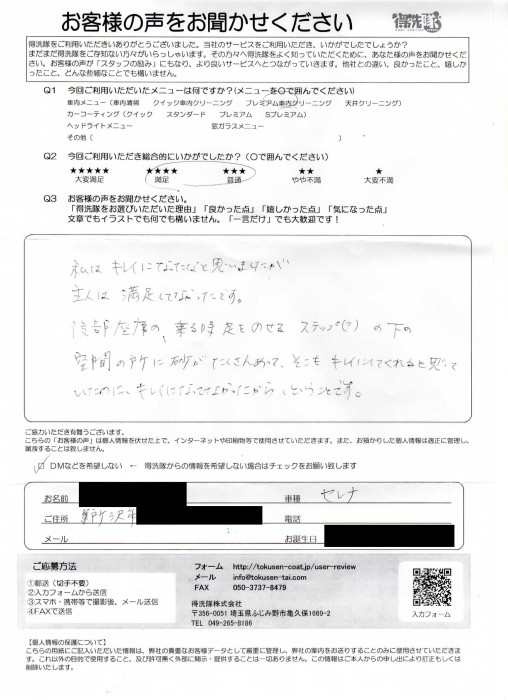 お客様の声をお聞かせください
得洗隊
得洗隊をご利用いただきありがとうございました。当社のサービスをご利用いただき、いかがでしたでしょうか？
まだまだ得洗隊をご存知ない方々がいらっしゃいます。その方々へ得洗隊をよく知っていただくために、あなた様の声をお聞かせくだ
さい。お客様の声が「スタッフの励み」にもなり、より良いサービスへとつながっていきます。他社との違い、良かったこと、嬉しか
ったこと、どんな些細なことでも構いません。
Q1 今回ご利用いただいたメニューは何ですか？(メニューを○で囲んでください)
車内メニュー（車内清掃 クイック車内クリーニング プレミアム車内クリーニング 天井クリーニング）
カーコーティング（クイック スタンダード プレミアム Sプレミアム）
ヘッドライトメニュー 窓ガラスメニュー
その他（ ）
Q2 今回ご利用いただき総合的にいかがでしたか？（○で囲んでください）
★★★★★ ★★★★ ★★★ ★★ ★
大変満足 満足 普通 やや不満 大変不満
Q3 お客様の声をお聞かせください。
「得洗隊をお選びいただいた理由」「良かった点」「嬉しかった点」「気になった点」
文章でもイラストでも何でも構いません。「一言だけ」でも大歓迎です！
私は キレイになったなと思いましたが
主人は 満足してなかったです。
後部座席の、乗る時 足をのせる ステップ(?) の下の
空間の所に 砂が たくさんあって、そこも キレイにしてくれると思って
いたのに、キレイになってなかったから、ということです。
ご協力いただき有難うございます。
こちらの「お客様の声」は個人情報を伏せた上で、インターネットや印刷物等で使用させていただきます。また、お預かりした個人情報は適正に管理し、
漏洩することは致しません。
DMなどを希望しない ← 得洗隊からの情報を希望しない場合はチェックをお願い致します
お名前 車種 セレナ
ご住所 電話
メール お誕生日
ご応募方法
①郵送（切手不要）
②入力フォームから送信
③スマホ・携帯等で撮影後、メール送信
④FAXで送信
フォーム http://tokusen-coat.jp/user-review
メール info@tokusen-tai.com
FAX 050-3737-8479
得洗隊株式会社
〒356-0051 埼玉県ふじみ野市亀久保1669-2
TEL 049-265-8186
入力フォーム
【個人情報の保護について】
こちらの用紙にご記入いただいた情報は、弊社の貴重なお客様データとして厳重に管理し、弊社の案内をお送りすることのみに使用させていただきま
す。これ以外の目的で使用すること、及び許可無く外部に開示・提供することは一切ありません。この情報はご本人からの申し出により訂正もしくは
削除いたします。